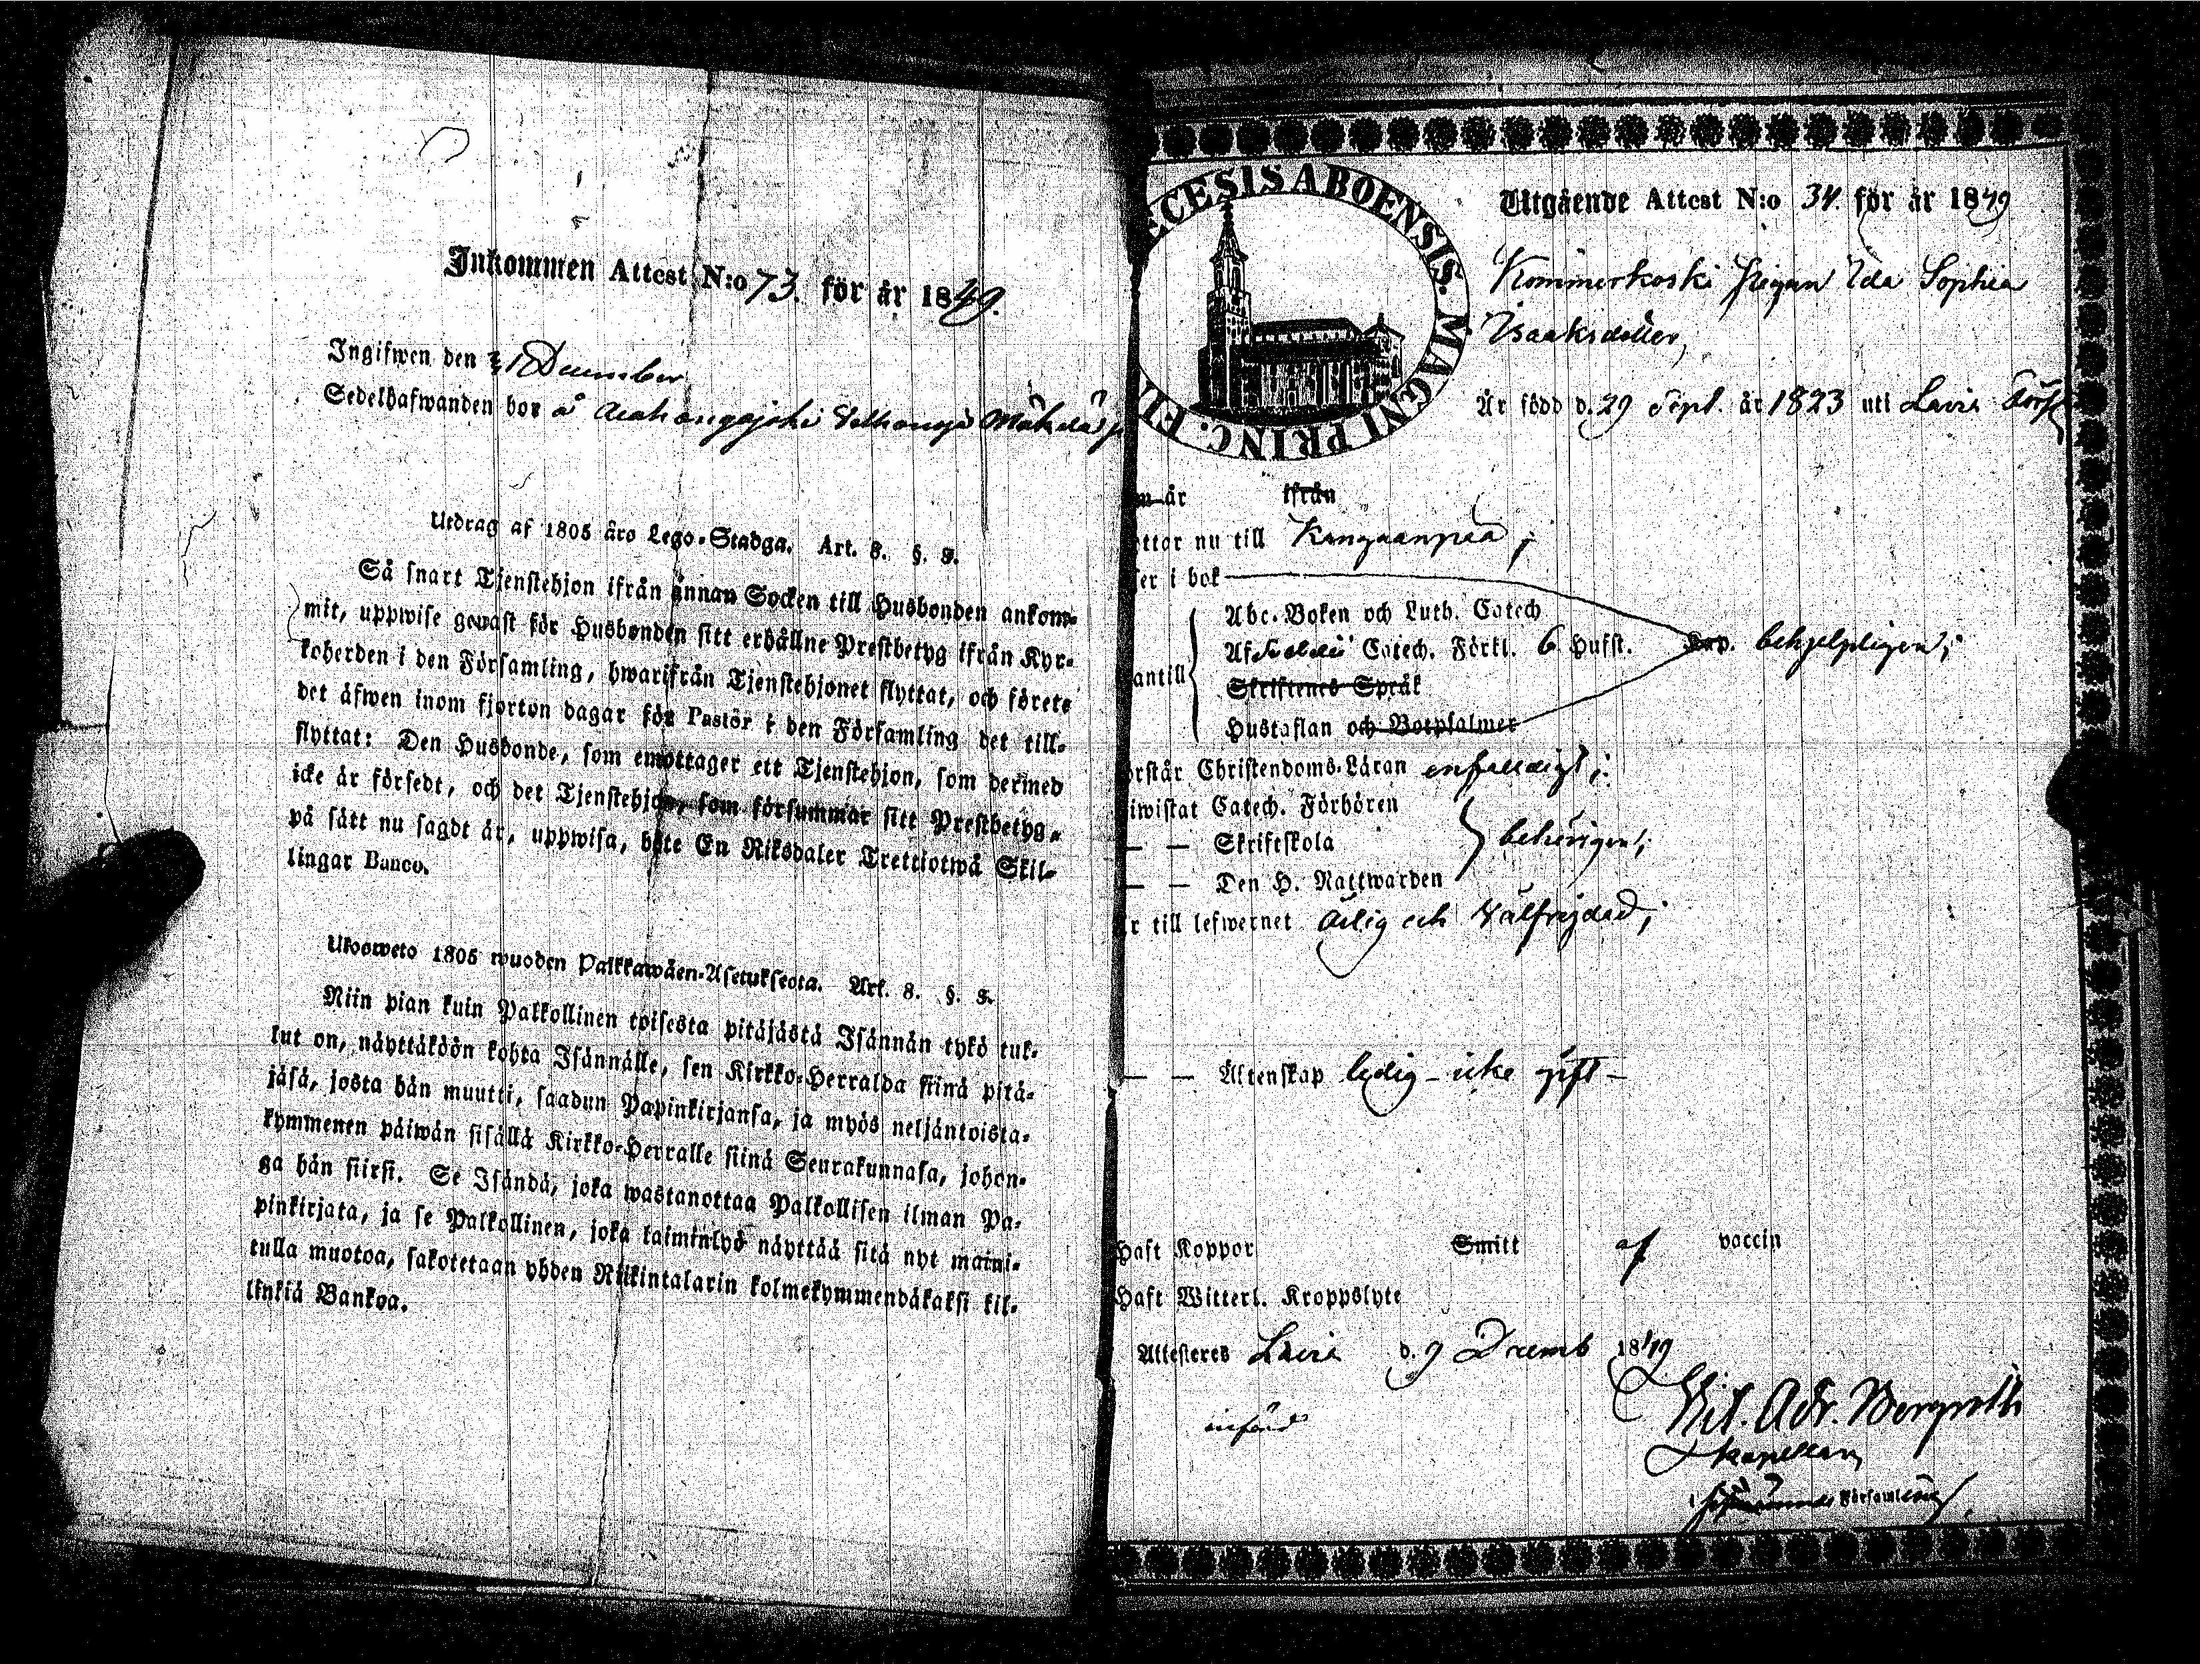 Inkommen Attest N:o 73. för år 1849.
Ingifwen den 31 December
Sedelhafwanden bor å
Utdrag af 1805 års Lego-Stadga. Art. 8. §. 3.
Så snart Tjenstehjon ifrån annan Socken till Husbonden ankom-
mit, uppwise genast för Husbonden sitt erhållne Prestbetyg ifrån Kyr-
koherden i den Församling, hwarifrån Tjenstehjonet flyttat, och förete
det äfwen inom fjorton dagar för Pastor i den Församling det till-
flyttat: Den Husbonde, som emottager ett Tjenstehjon, som dermed
icke är försedt, och det Tjenstehjon, som försummar sitt Prestbetyg,
på sätt nu sagdt är, uppwisa, böte En Riksdaler Trettiotwå Skil-
lingar Banco.
Ulosweto 1805 wuoden Palkkawäen-Asetuksesta. Art. 8. §. 3.
Niin pian kuin Palkollinen toisesta pitäjästä Isännän tykö tul-
lut on, näyttäköön kohta Isännälle, sen Kirkko-Herralda siinä pitä-
jäsä, josta hän muutti, saadun Papinkirjansa, ja myös neljäntoista-
kymmenen päiwän sisällä Kirkko-Herralle siinä Seurakunnasa, johon-
ga hän siirsi. Se Isändä, joka wastanottaa Palkollisen ilman Pa-
pinkirjata, ja se Palkollinen, joka laiminlyö näyttää sitä nyt maini-
tulla muotoa, sakotetaan yhden Riikintalarin kolmekymmendäkaksi kil-
linkiä Bankoa.
ECESIS ABOENSIS. MAGNI PRINC. FI
Utgående Attest N:o 34. för år 1849
Kommerkoski Pigan Ida Sophia
Isaaksdotter,
År född d. 29 Sept. år 1823 uti Lavia
m år ifrån
ttar nu till Kangaanpää;
ser i bok
Abc-Boken och Luth. Catech
Af Catech. Förkl. 6 Hufst. behjelpligen;
antill
Skriftenes Språk
Hustaflan och Botpsalmer
örstår Christendoms-Läran enfaldigt;
iwistat Catech. Förhören
— — Skriftskola behörigen;
— — Den H. Nattwarden
r till lefwernet ärlig och välfrejdad;
— — Äktenskap ledig - icke gift -
Haft Koppor Smitt af vaccin
Haft Witterl. Kroppslyte
Attesteras Lavia d. 9 Decemb 1849
införd
Adr. Bergroth
Kapellan
i Församling